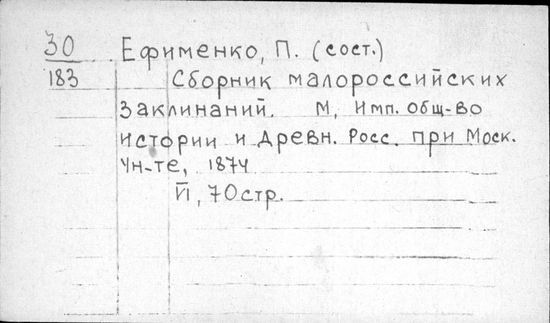 30 Ефименко, П. (сост.)
183 Сборник малороссийских
заклинаний. М, Имп. общ-во
истории и Древн. Росс. при Моск.
Ун-те, 1874
VI, 70 стр.